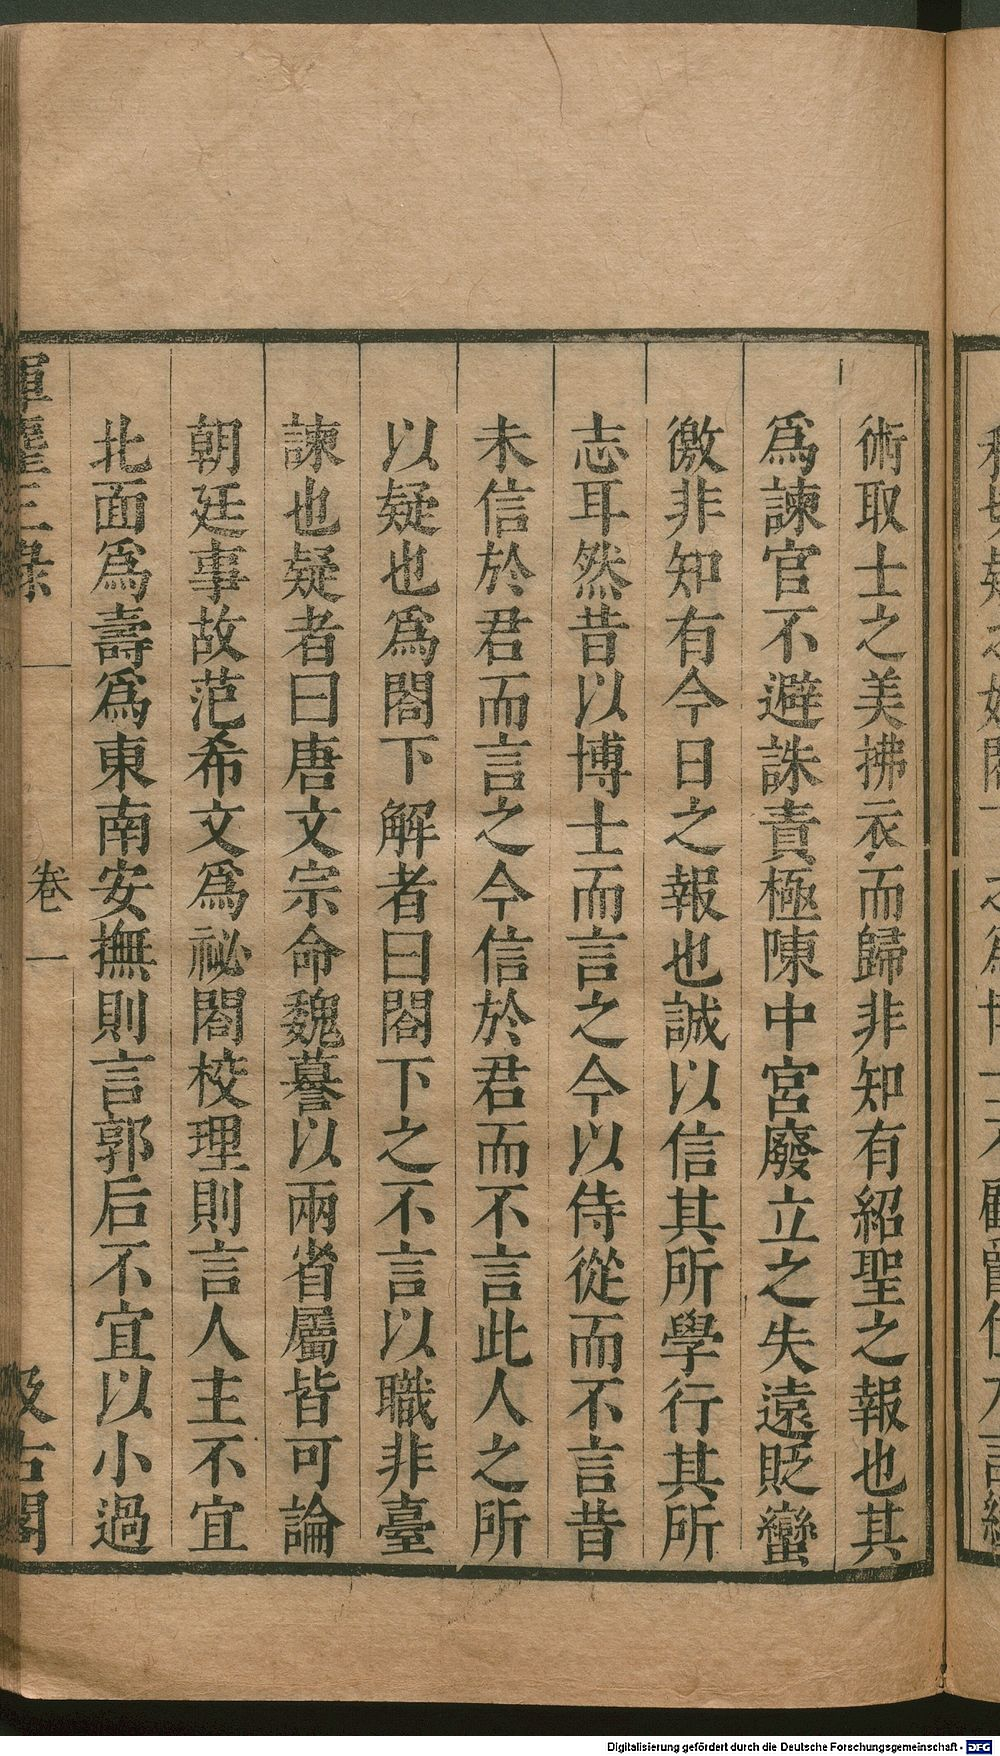 術取士之美拂衣而歸非知有紹聖之報也其
爲諫官不避誅責極陳中宮廢立之失遠貶蠻
徼非知有今日之報也誠以信其所學行其所
志耳然昔以博士而言之今以侍從而不言昔
未信於君而言之今信於君而不言此人之所
以疑也爲閤下解者曰閤下之不言以職非臺
諫也疑者曰唐文宗命魏謩以兩省屬皆可論
朝廷事故范希文爲祕閣校理則言人主不宜
北面爲壽爲東南安撫則言郭后不宜以小過
揮麈三錄
卷一
汲古閣
Digitalisierung gefördert durch die Deutsche Forschungsgemeinschaft - DFG